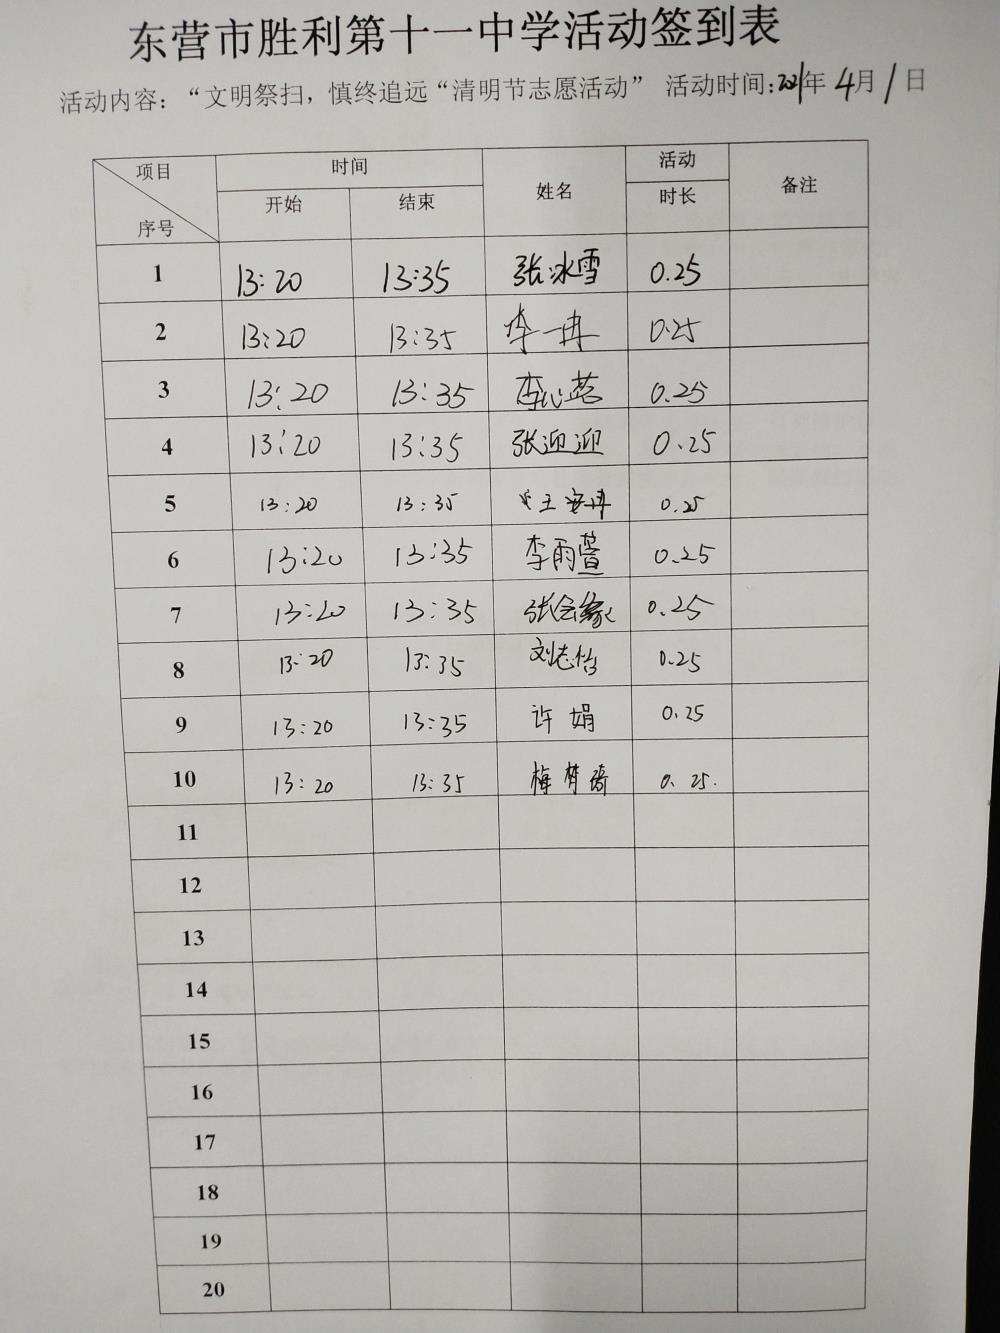 东营市胜利第十一中学活动签到表
活动内容：“文明祭扫，慎终追远“清明节志愿活动” 活动时间:2021年 4月 1日
项目 时间 姓名 活动 备注
序号 开始 结束 时长
1 13:20 13:35 张冰雪 0.25
2 13:20 13:35 李一冉 0.25
3 13:20 13:35 李心蕊 0.25
4 13:20 13:35 张迎迎 0.25
5 13:20 13:35 王安冉 0.25
6 13:20 13:35 李雨萱 0.25
7 13:20 13:35 张会缘 0.25
8 13:20 13:35 刘志怡 0.25
9 13:20 13:35 许娟 0.25
10 13:20 13:35 梅梦琦 0.25.
11
12
13
14
15
16
17
18
19
20